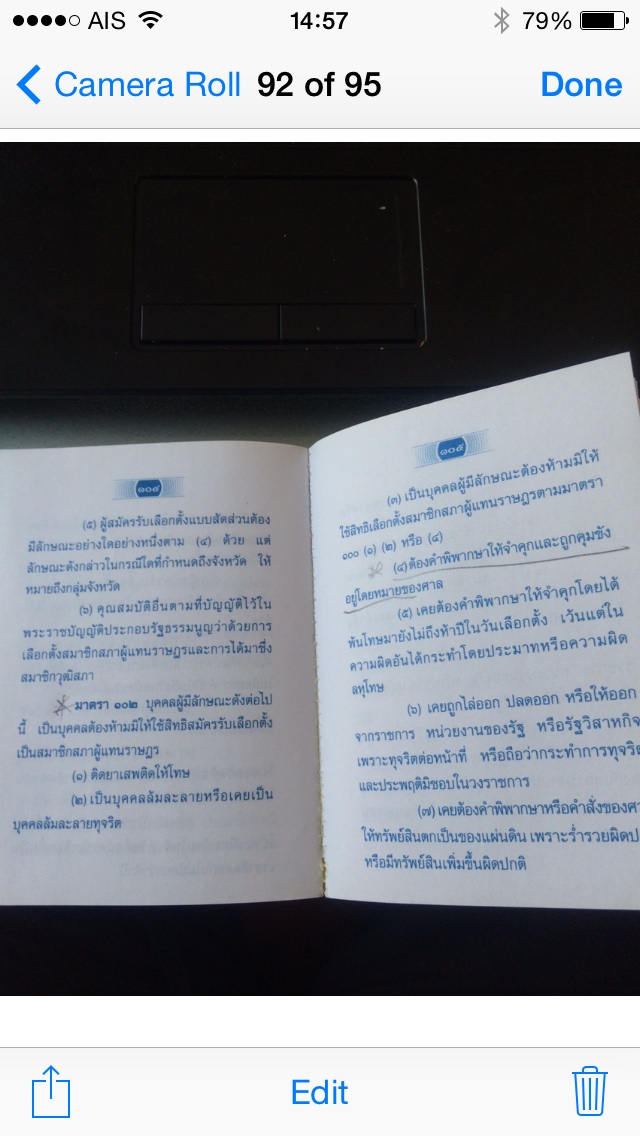 AIS
14:57
79%
Camera Roll
92 of 95
Done
๑๐๔
(๕) ผู้สมัครรับเลือกตั้งแบบสัดส่วนต้อง
มีลักษณะอย่างใดอย่างหนึ่งตาม (๔) ด้วย แต่
ลักษณะดังกล่าวในกรณีใดที่กำหนดถึงจังหวัด ให้
หมายถึงกลุ่มจังหวัด
(๖) คุณสมบัติอื่นตามที่บัญญัติไว้ใน
พระราชบัญญัติประกอบรัฐธรรมนูญว่าด้วยการ
เลือกตั้งสมาชิกสภาผู้แทนราษฎรและการได้มาซึ่ง
สมาชิกวุฒิสภา
มาตรา ๑๐๒ บุคคลผู้มีลักษณะดังต่อไป
นี้ เป็นบุคคลต้องห้ามมิให้ใช้สิทธิสมัครรับเลือกตั้ง
เป็นสมาชิกสภาผู้แทนราษฎร
(๑) ติดยาเสพติดให้โทษ
(๒) เป็นบุคคลล้มละลายหรือเคยเป็น
บุคคลล้มละลายทุจริต
๑๐๕
(๓) เป็นบุคคลผู้มีลักษณะต้องห้ามมิให้
ใช้สิทธิเลือกตั้งสมาชิกสภาผู้แทนราษฎรตามมาตรา
๑๐๐ (๑) (๒) หรือ (๔)
(๔) ต้องคำพิพากษาให้จำคุกและถูกคุมขัง
อยู่โดยหมายของศาล
(๕) เคยต้องคำพิพากษาให้จำคุกโดยได้
พ้นโทษมายังไม่ถึงห้าปีในวันเลือกตั้ง เว้นแต่ใน
ความผิดอันได้กระทำโดยประมาทหรือความผิด
ลหุโทษ
(๖) เคยถูกไล่ออก ปลดออก หรือให้ออก
จากราชการ หน่วยงานของรัฐ หรือรัฐวิสาหกิจ
เพราะทุจริตต่อหน้าที่ หรือถือว่ากระทำการทุจริต
และประพฤติมิชอบในวงราชการ
(๗) เคยต้องคำพิพากษาหรือคำสั่งของศา
ให้ทรัพย์สินตกเป็นของแผ่นดิน เพราะร่ำรวยผิดป
หรือมีทรัพย์สินเพิ่มขึ้นผิดปกติ
Edit